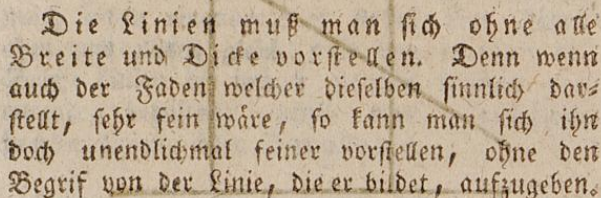 Die Linien muß man sich ohne alle
Breite und Dicke vorstellen. Denn wenn
auch der Faden welcher dieselben sinnlich dar⸗
stellt, sehr fein wäre, so kann man sich ihn
doch unendlichmal feiner vorstellen, ohne den
Begrif von der Linie, die er bildet, aufzugeben.